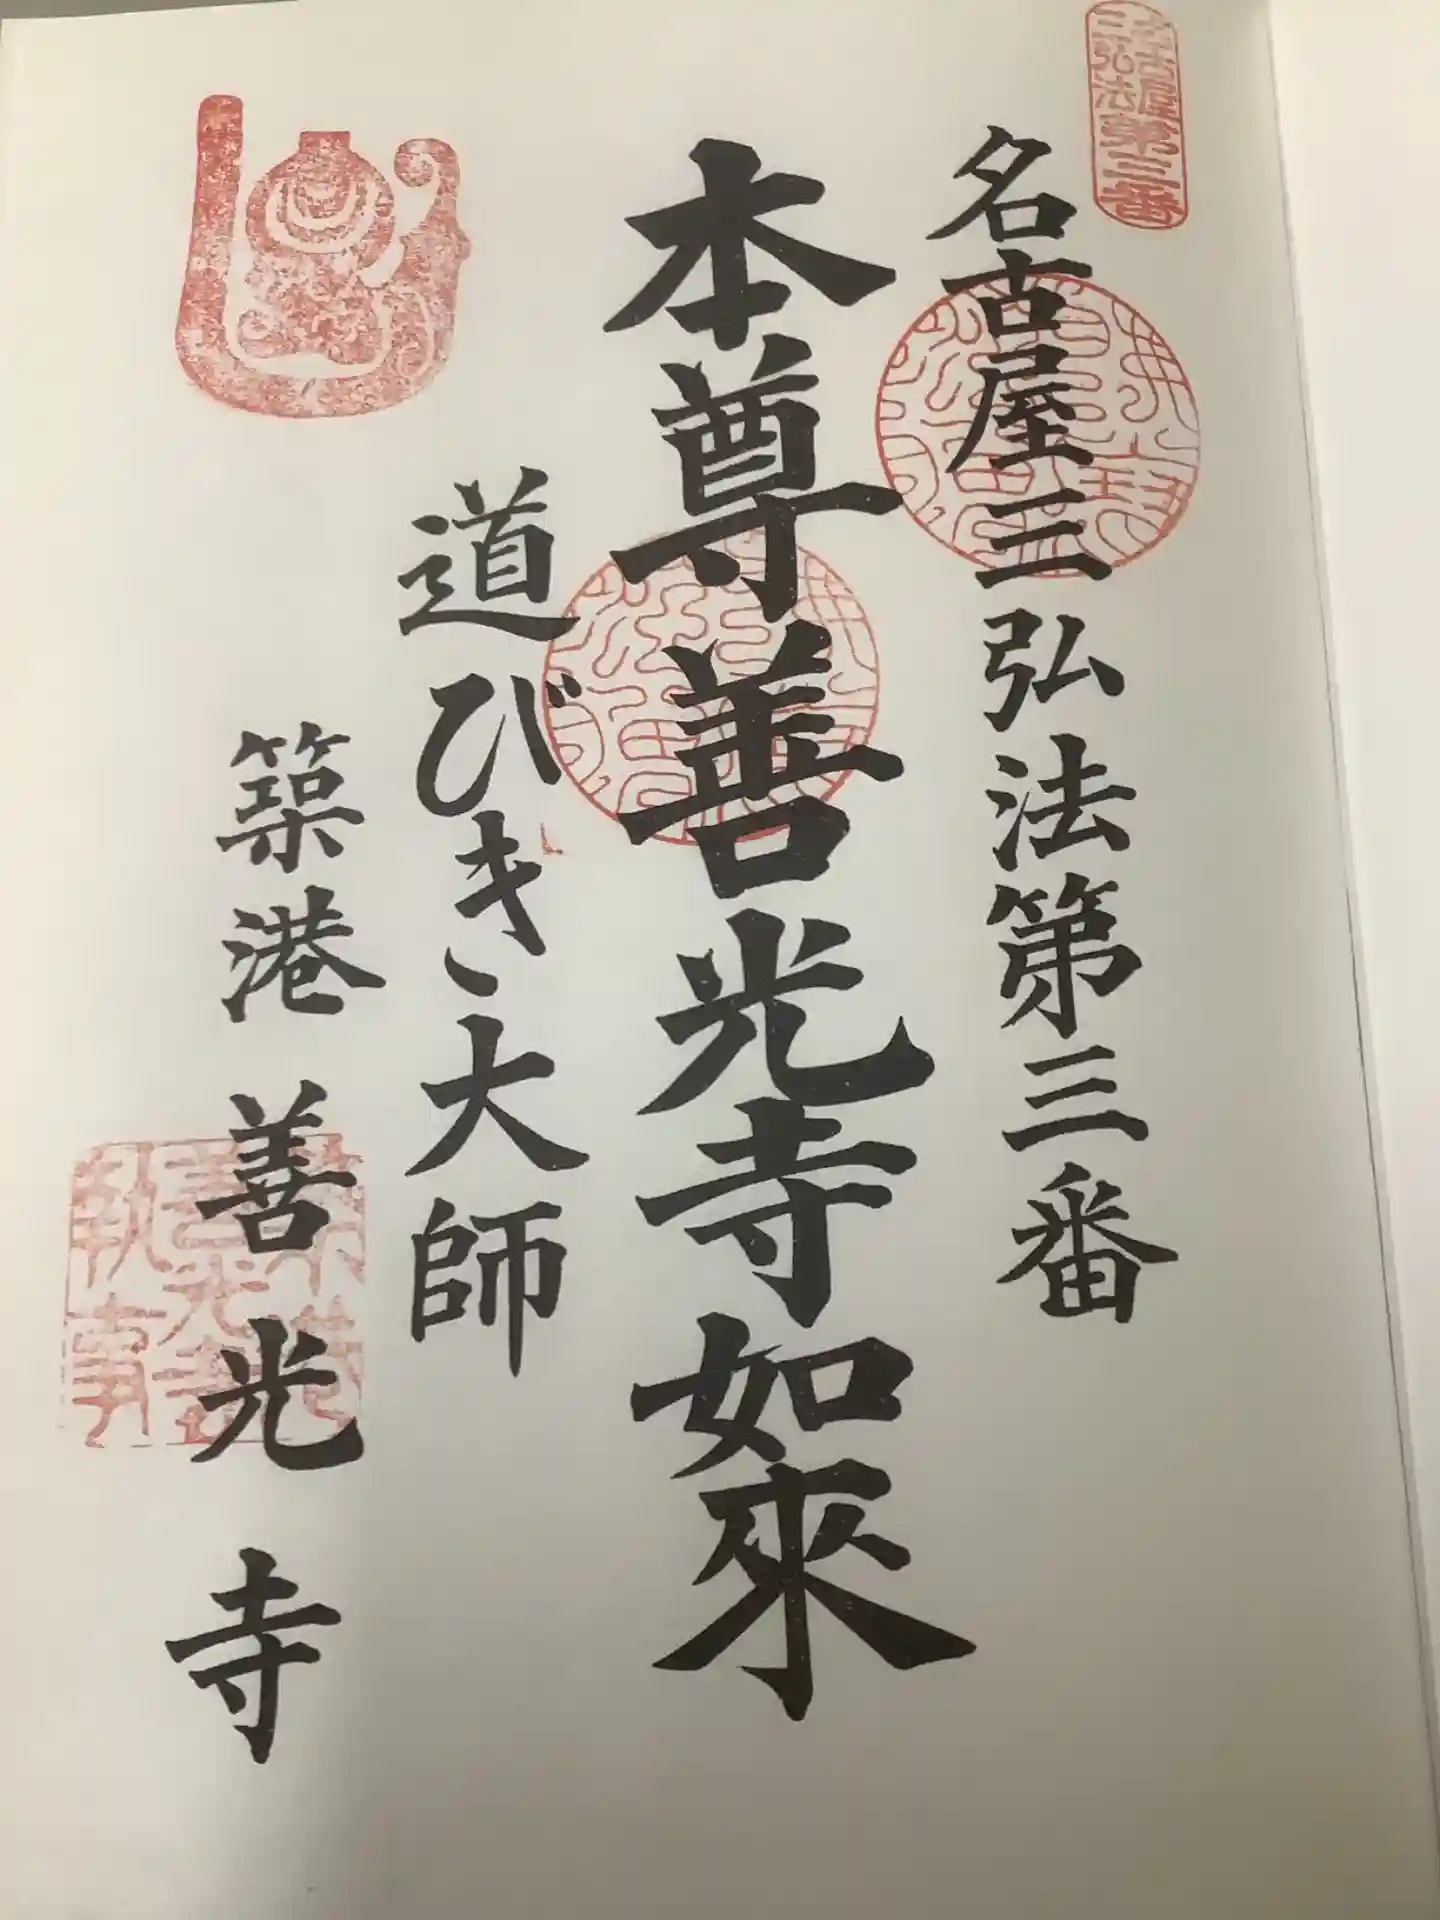 名古屋三弘法第三番
名古屋三弘法第三番
本尊善光寺如來
道びき大師
築港善光寺
築港善光寺執事